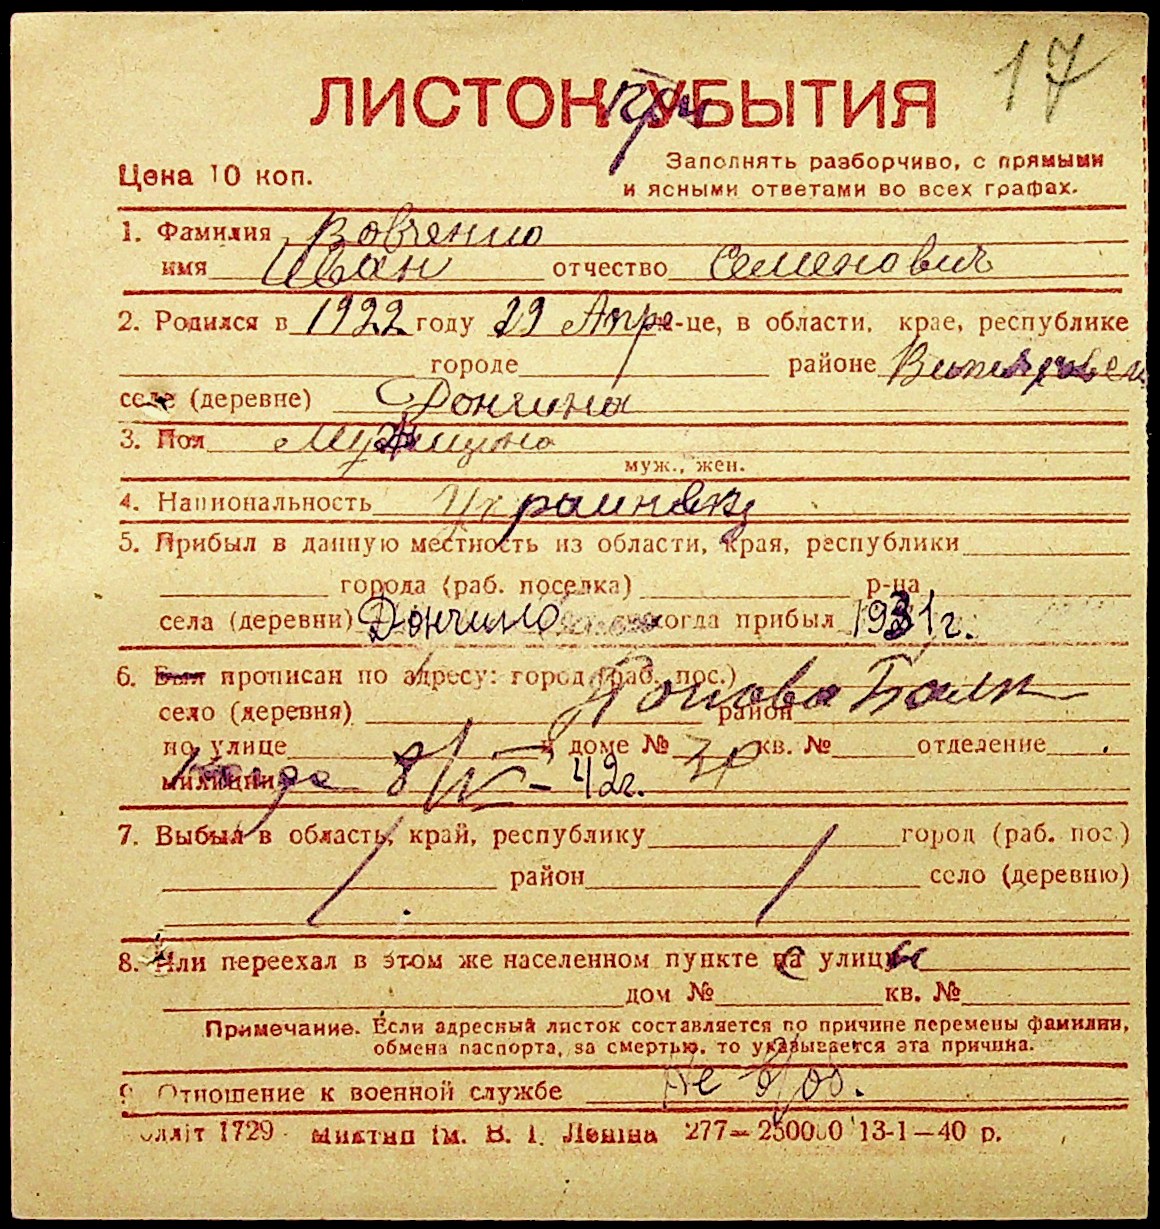 17
ЛИСТОК УБЫТИЯ
При
Цена 10 коп.
Заполнять разборчиво, с прямыми
и ясными ответами во всех графах.
1. Фамилия Вовченко
имя Иван отчество Семенович
2. Родился в 1922 году 29 Апре-це, в области, крае, республике
городе районе
селе (деревне) Дончина
3. Пол Мужщина
муж., жен.
4. Национальность
5. Прибыл в данную местность из области, края, республики
города (раб. поселка) р-на
села (деревни) Дончино когда прибыл 1931 г.
6. Был прописан по адресу: город (раб. пос.)
село (деревня) район Попова Балк
по улице в доме № кв. № отделение
милиции Когда 8/IV-42 г.
7. Выбыл в область, край, республику город (раб. пос.)
район село (деревню)
8. Или переехал в этом же населенном пункте на улицу
дом № кв. №
Примечание. Если адресный листок составляется по причине перемены фамилии,
обмена паспорта, за смертью, то указывается эта причина.
9. Отношение к военной службе Не в/об.
1729 ім. В. І. Леніна 277—250000 13-1—40 р.